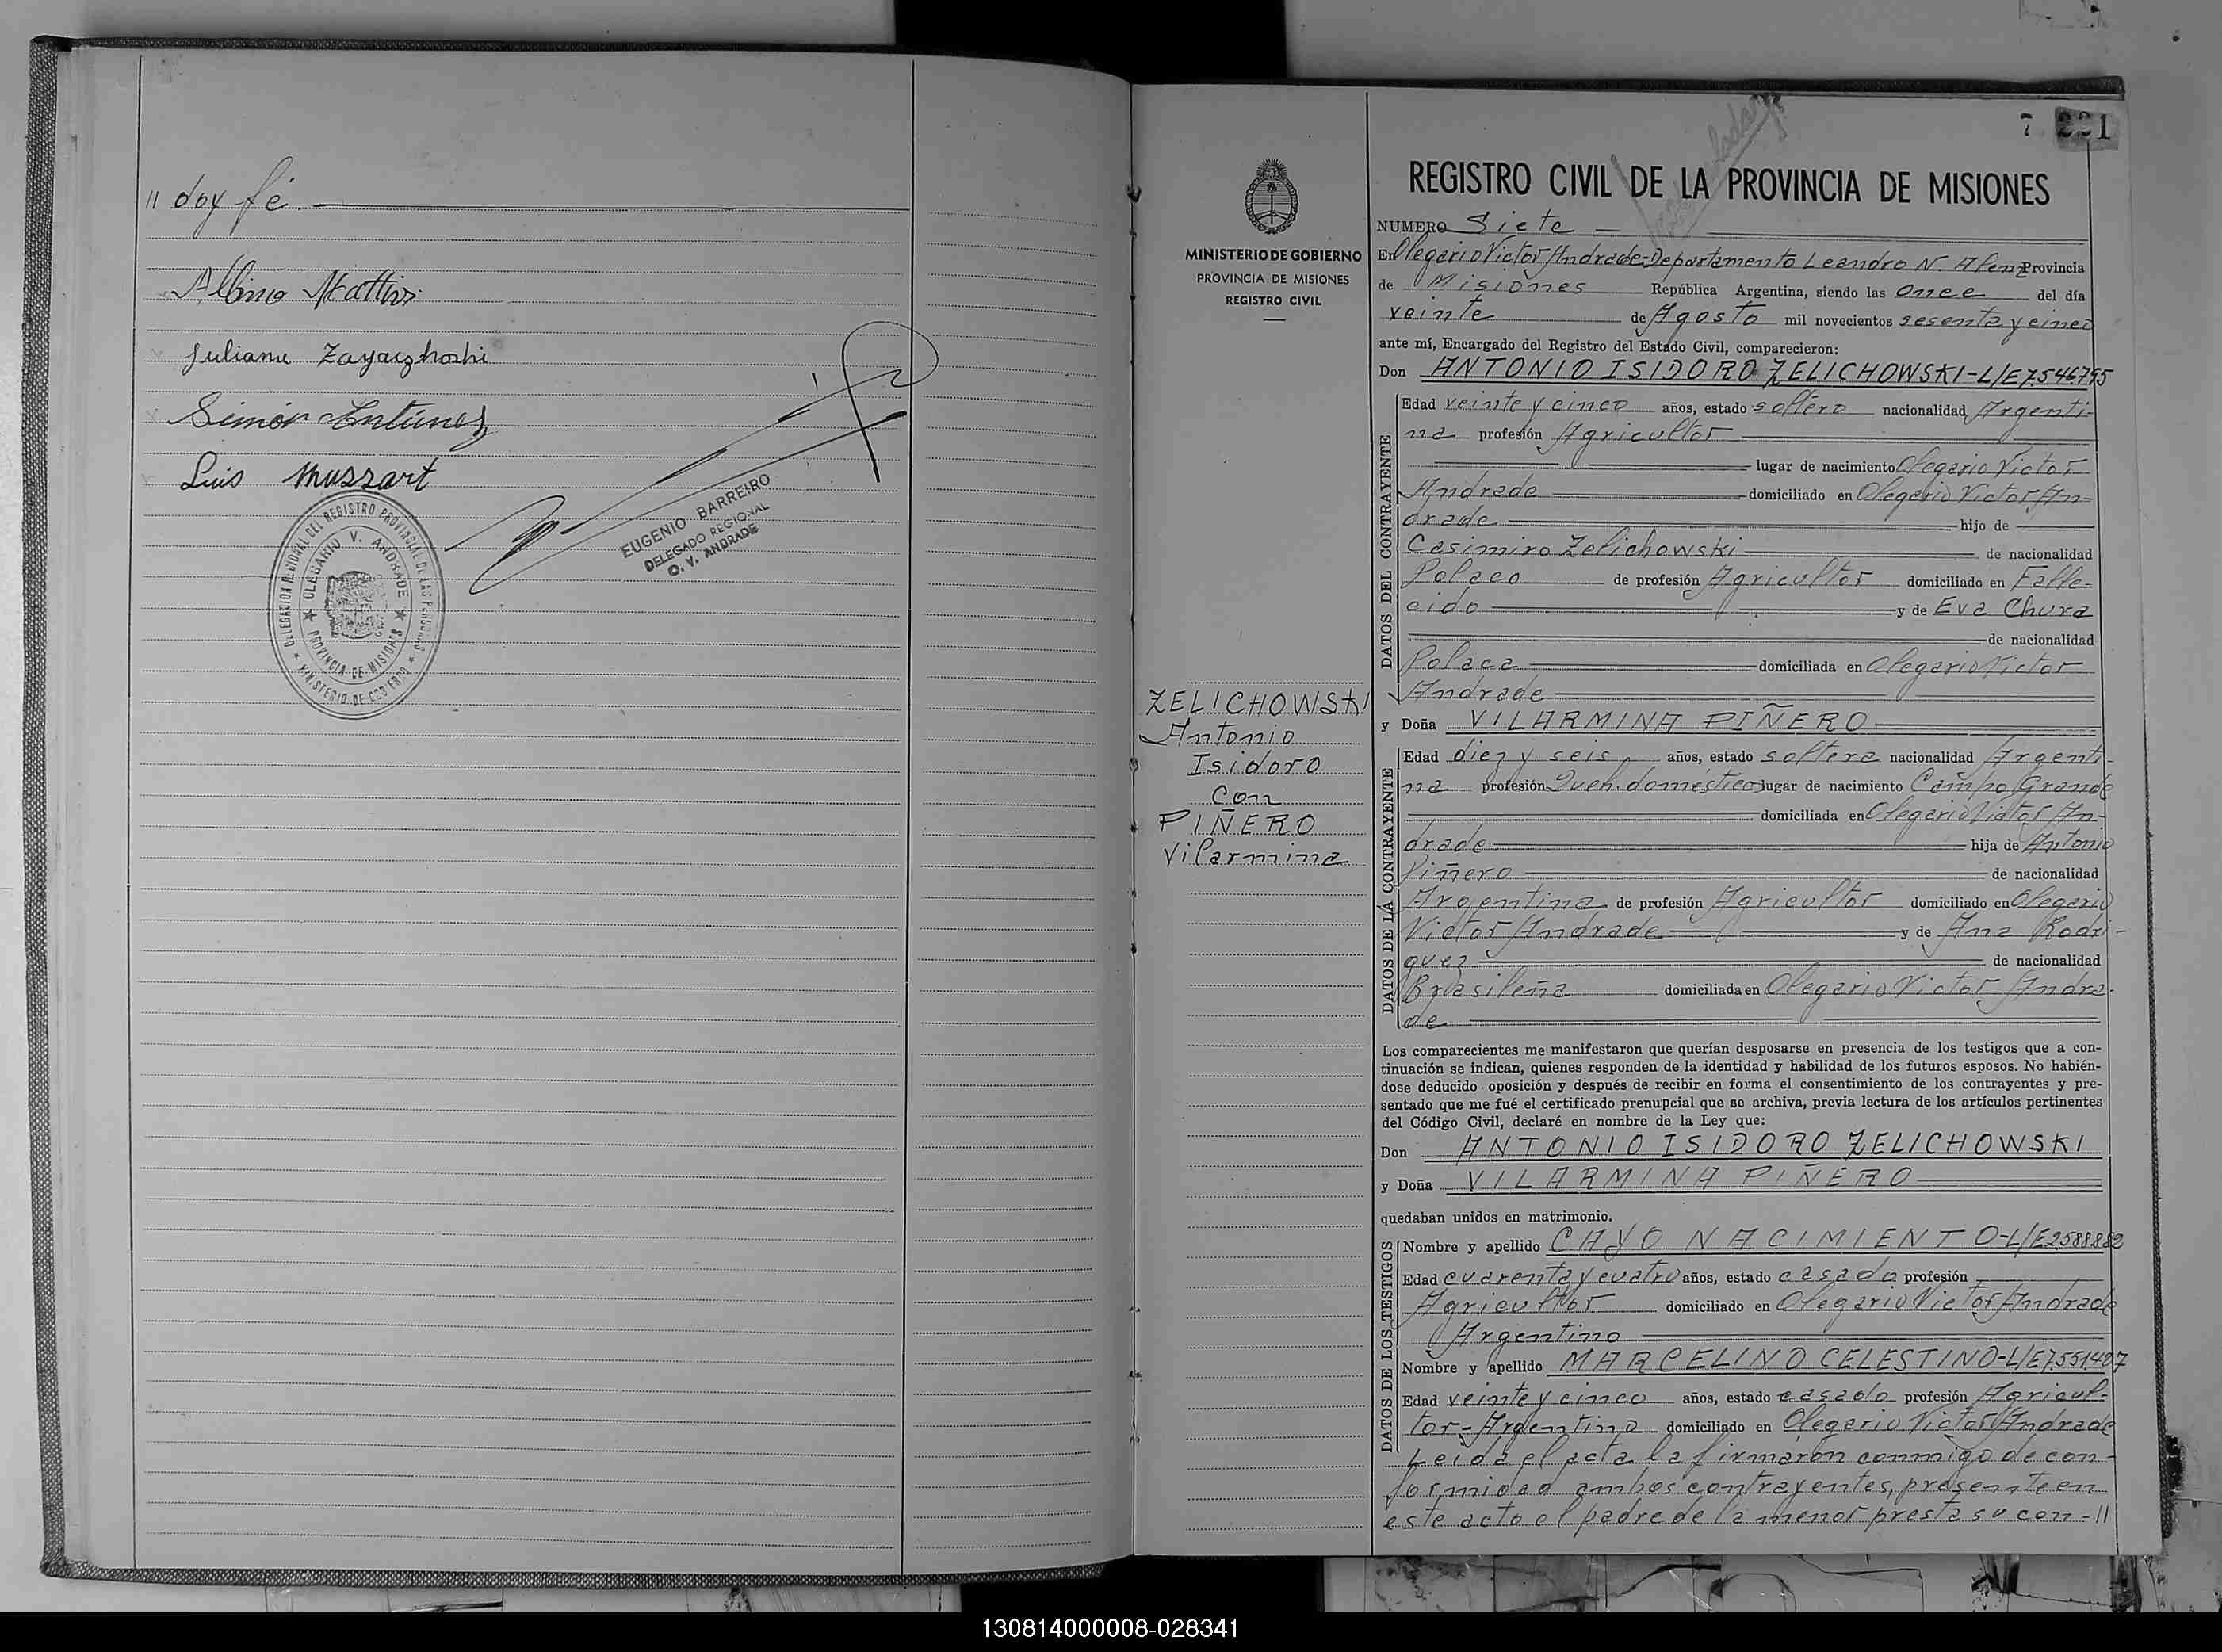 " doy fé.
Albino Mattivi
Juliana Zayaczkoski
Simón Antúnez
Luis Mussart
EUGENIO BARREIRO
DELEGADO REGIONAL
O. V. ANDRADE
DELEGACION REGIONAL DEL REGISTRO PROVINCIAL DE LAS PERSONAS
OLEGARIO V. ANDRADE
PROVINCIA DE MISIONES
MINISTERIO DE GOBIERNO
MINISTERIO DE GOBIERNO
PROVINCIA DE MISIONES
REGISTRO CIVIL
ZELICHOWSKI
Antonio
Isidoro
Con
PIÑERO
Vilarmina
7 221
REGISTRO CIVIL DE LA PROVINCIA DE MISIONES
NUMERO Siete
En Olegario Victor Andrade-Departamento Leandro N. Alem Provincia
de Misiones República Argentina, siendo las once del día
veinte de Agosto mil novecientos sesenta y cinco
ante mí, Encargado del Registro del Estado Civil, comparecieron:
Don ANTONIO ISIDORO ZELICHOWSKI-L/E7.546.795
DATOS DEL CONTRAYENTE
Edad veinte y cinco años, estado soltero nacionalidad Argenti-
na profesión Agricultor
lugar de nacimiento Olegario Victor
Andrade domiciliado en Olegario Victor An-
drade hijo de
Casimiro Zelichowski de nacionalidad
Polaco de profesión Agricultor domiciliado en Falle-
cido y de Eva Chura
de nacionalidad
Polaca domiciliada en Olegario Victor
Andrade
y Doña VILARMINA PIÑERO
DATOS DE LA CONTRAYENTE
Edad diez y seis años, estado soltera nacionalidad Argenti-
na profesión Queh. doméstico lugar de nacimiento Campo Grande
domiciliada en Olegario Victor An-
drade hija de Antonio
Piñero de nacionalidad
Argentina de profesión Agricultor domiciliado en Olegario
Victor Andrade y de Ana Rodri-
guez de nacionalidad
Brasileña domiciliada en Olegario Victor Andra-
de
Los comparecientes me manifestaron que querían desposarse en presencia de los testigos que a con-
tinuación se indican, quienes responden de la identidad y habilidad de los futuros esposos. No habién-
dose deducido oposición y después de recibir en forma el consentimiento de los contrayentes y pre-
sentado que me fué el certificado prenupcial que se archiva, previa lectura de los artículos pertinentes
del Código Civil, declaré en nombre de la Ley que:
Don ANTONIO ISIDORO ZELICHOWSKI
y Doña VILARMINA PIÑERO
quedaban unidos en matrimonio.
DATOS DE LOS TESTIGOS
Nombre y apellido CAYO NACIMIENTO-L/E2.588.882
Edad cuarenta y cuatro años, estado casado profesión
Agricultor domiciliado en Olegario Victor Andrade
Argentino
Nombre y apellido MARCELINO CELESTINO-L/E7.551.487
Edad veinte y cinco años, estado casado profesión Agricul-
tor-Argentino domiciliado en Olegario Victor Andrade
Leída el acta la firmaron conmigo de con-
formidad ambos contrayentes, presente en
este acto el padre de la menor presta su con-"
130814000008-028341